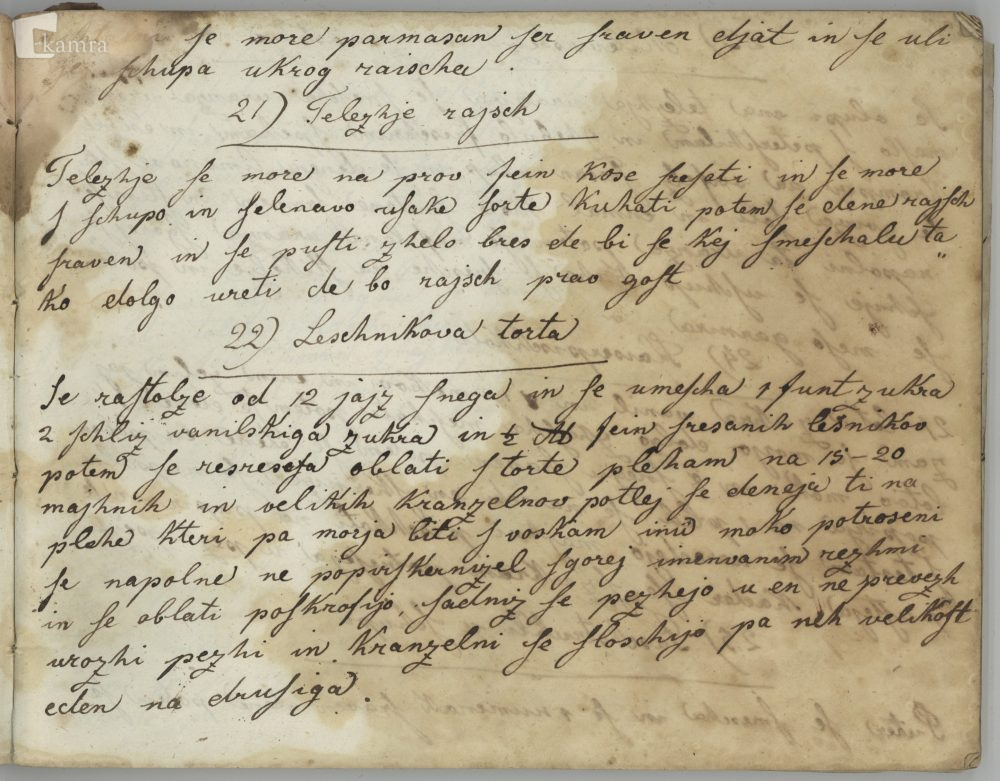 kamra
se more parmasan ser sraven djat in se uli
schupa ukrog raischa .
21) Telezhje rajsch
Telezhje se more na prov fein kose sresati in se more
s schupo in selenavo usake sorte kuhati potem se dene rajsch
sraven in se pusti zhelo bres de bi se kej smeschalu ta„
ko dolgo vreti de bo rajsch prao gost
22) Leschnikova torta
Se rastolze od 12 jajz snega in se umescha 1 funt zukra
2 schliz vanilskiga zukra in ½ ℔ fein sresanih lešnikov
potem se resreseja oblati s torte pleham na 15–20
majhnih in velikih kranzelnov potlej se deneja ti na
plehe kteri pa morja biti s voskam inu moko potroseni
se napolne ne popirskernizel sgorej imenvanim rezhmi
in se oblati poskrofijo, sadniz se pezhejo u en ne prevezh
urozhi pezhi in kranzelni se sloschijo pa neh velikost
eden na drusiga .